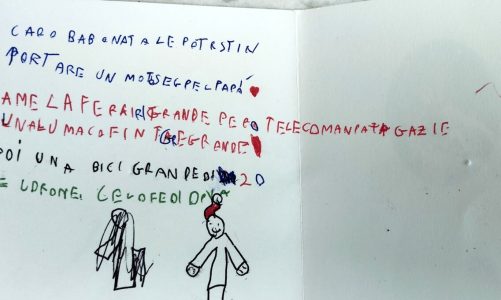 CARO BABONATALE POTRSTIN
PORTARE UN MOTSEGPELPAPÁ
AMELAFERRIGRANDE PERO TELECOMANPATA GAZIE
UNALUMACOFINTAEGRANDE
POI UNA BICI GRANPEDI 20
E LDRONE CELOFEDI